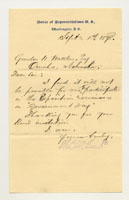 House of Representatives U.S.,
Washington, D.C.
Sept. 1st 189
Gurdon W. Wattles, Esq
Omaha, Nebraska.
Dear Sir:
I find it will not
be possible for me to participate
in the Exposition ceremonies
on "Government Day"
Thanking you for your
kind invitation
I am,